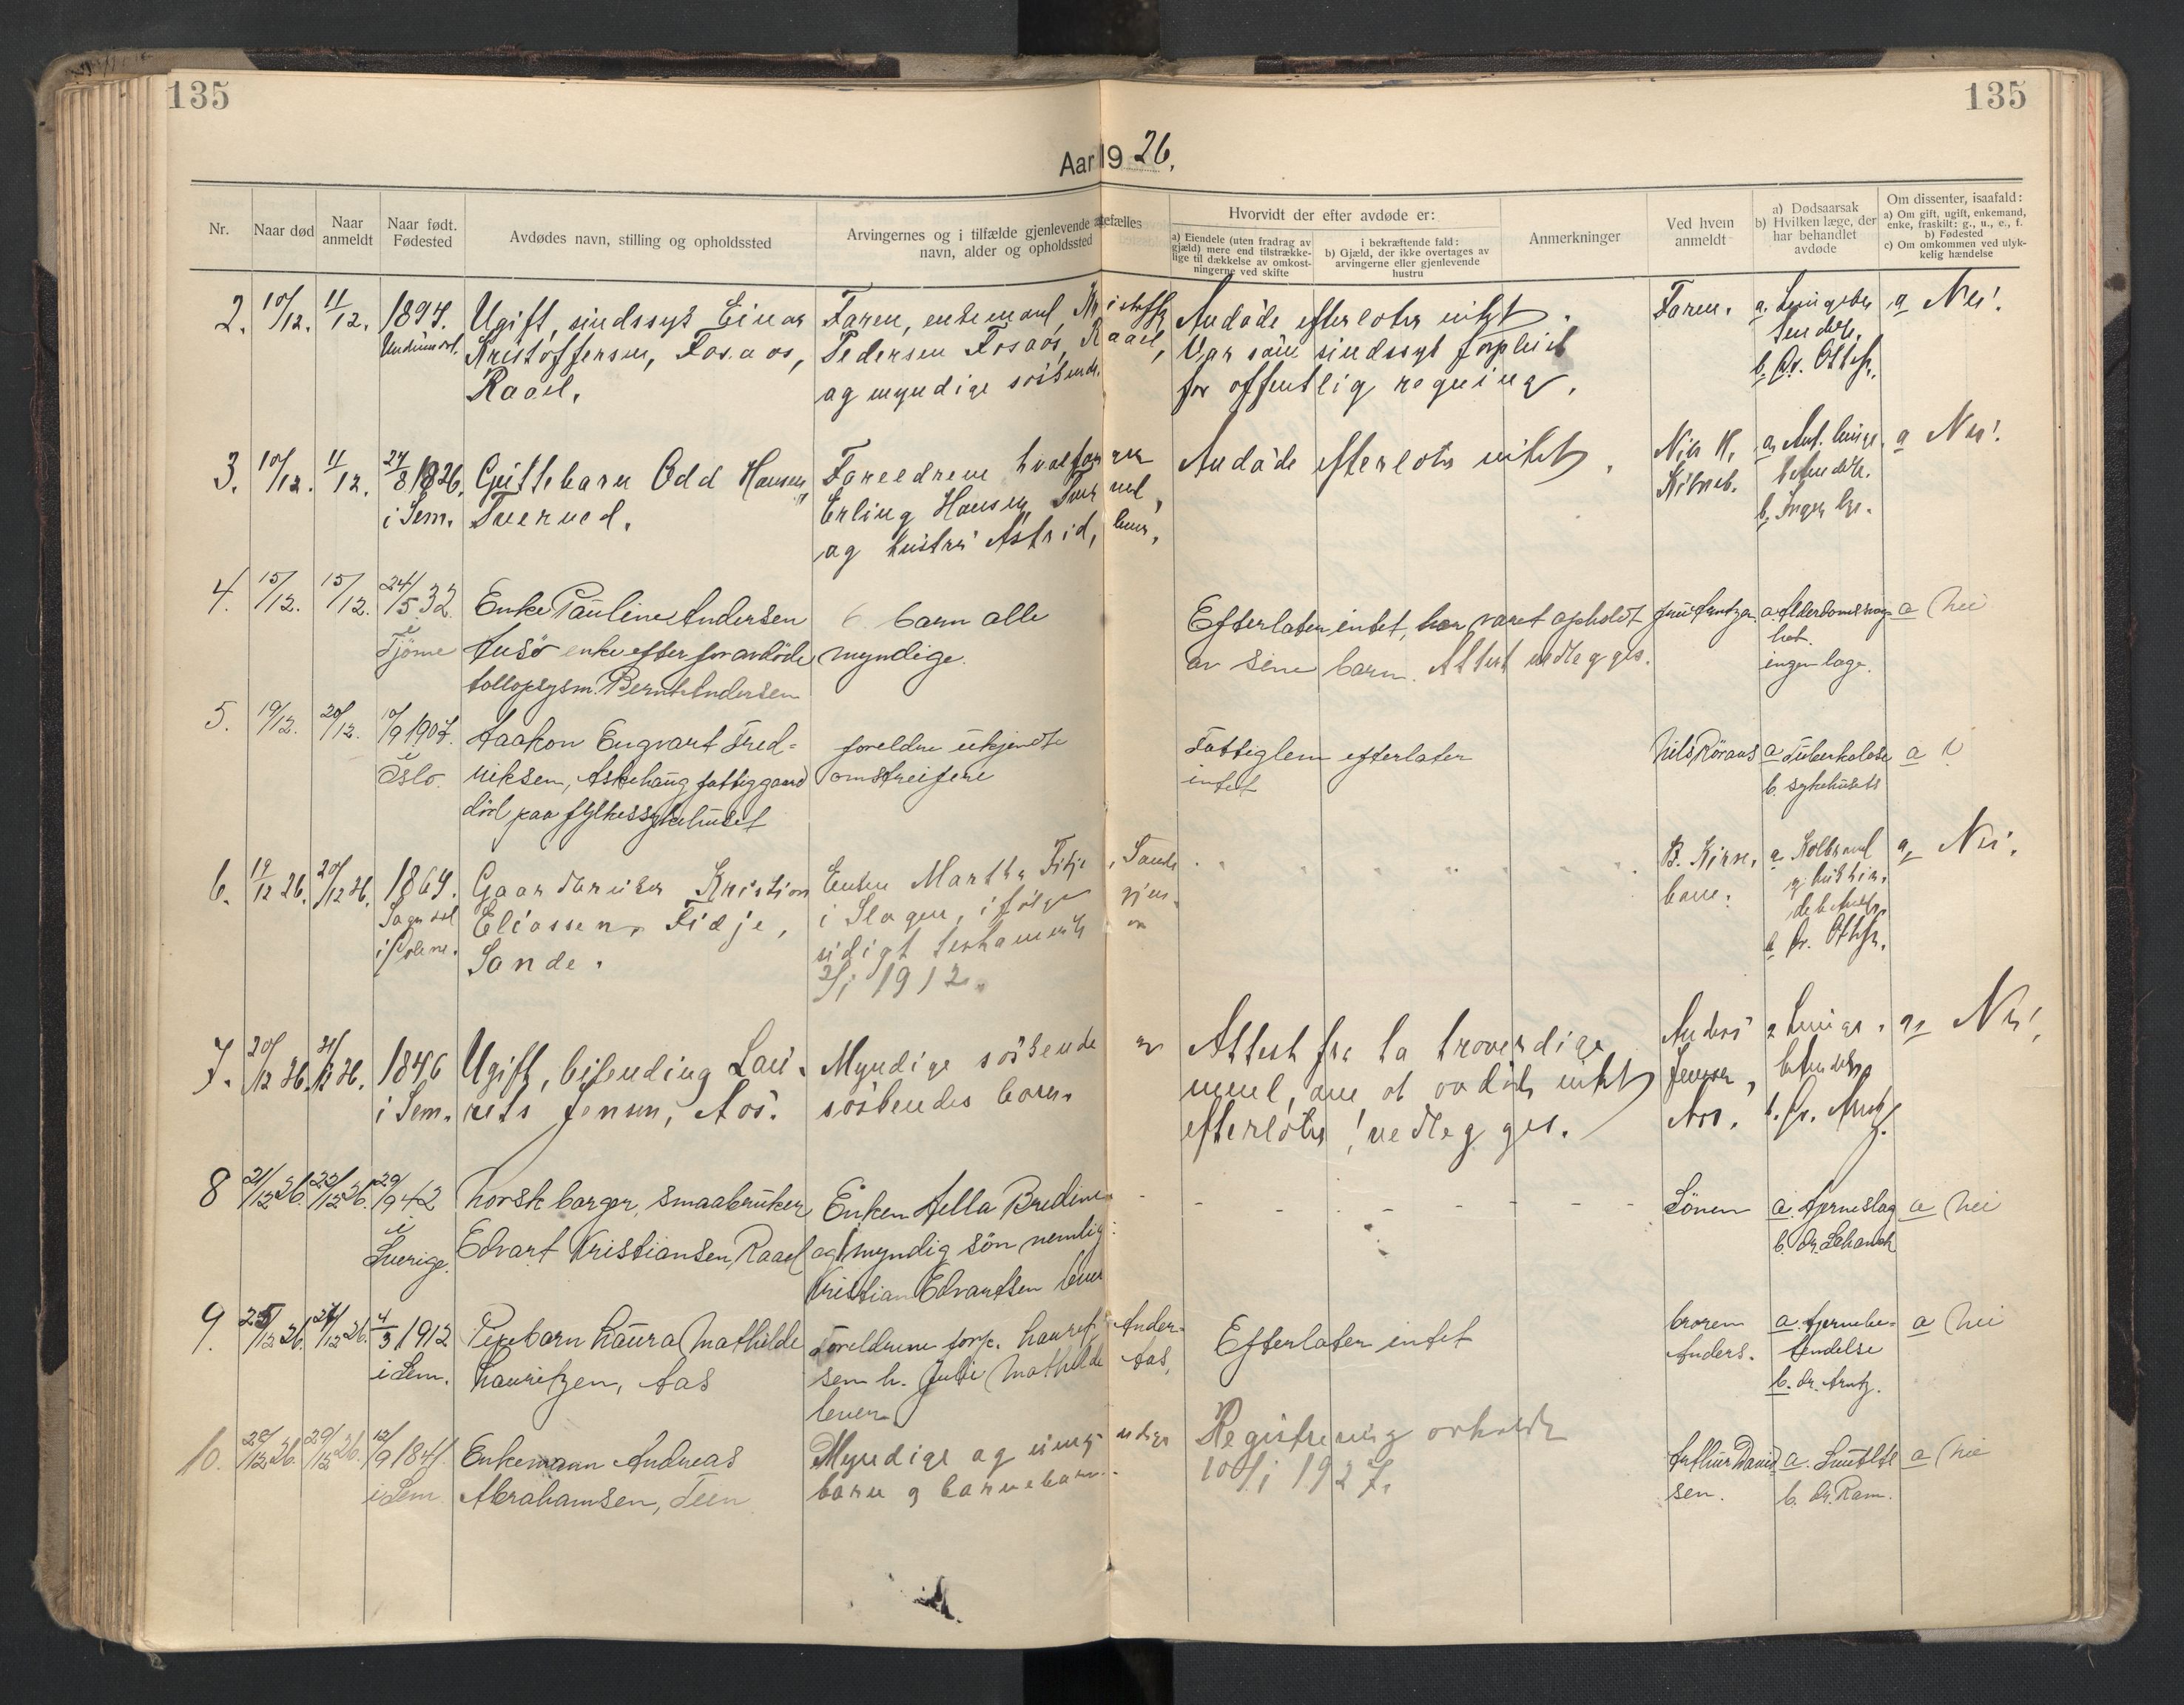 135
135
Aar 19 26.
Nr.
Naar død
Naar anmeldt
Naar født. Fødested
Avdødes navn, stilling og opholdssted
Arvingernes og i tilfælde gjenlevende ægtefælles
navn, alder og opholdssted
Hvorvidt der efter avdøde er:
a) Eiendele (uten fradrag av
gjæld) mere end tilstrække-
lige til dækkelse av omkost-
ningerne ved skifte
i bekræftende fald:
b) Gjæld, der ikke overtages av
arvingerne eller gjenlevende
hustru
Anmerkninger
Ved hvem
anmeldt
a) Dødsaarsak
b) Hvilken læge, der
har behandlet
avdøde
Om dissenter, isaafald:
a) Om gift, ugift, enkemand,
enke, fraskilt: g., u., e., f.
b) Fødested
c) Om omkommen ved ulyk-
kelig hændelse
2. 10/12. 11/12. 1894.
Ugift, sindssyk Einar
Kristoffersen, Fosaas,
Raael.
Faren, enkemand
Pedersen Fosaas, Raael,
og myndige söskende.
Avdöde efterlater intet.
Var som sindssyk forpleiet
for offentlig regning.
Faren.
b. Dr. Ottesen.
a Nei.
3. 10/12. 11/12. 24/8 1926.
i Sem.
Guttebarn Odd Hansen
Tverved.
Foreldrene
Erling Hansen
og hustru Astrid, lever.
Avdöde efterlater intet.
b. Ingen læge.
a Nei.
4. 15/12. 15/12. 24/5 32.
i
Tjöme
Enke Pauline Andersen
Husö enke efter foravdöde
Bernt Andersen
6 barn alle
myndige.
Efterlater intet, har været opholdt
av sine barn. Attest vedlegges.
a. Alderdomssvag-
het.
ingen læge.
a Nei
5. 19/12. 20/12. 10/9 1907.
i
Oslo.
Haakon Engvart Fred-
riksen, Askehaug fattiggaard
död paa fylkessykehuset
foreldre ukjendte
omstreifere
Fattiglem efterlater
intet
Nils Röraas
a Tuberkulose
b. sykehusets
a
6. 19/12 26. 20/12 26. 1864.
Gaardbruker Kristian
Eliassen, Fidje,
Sande.
Enken Martha Fidje, Sande
i Slagen, ifölge gjen-
sidigt testamente av
2/1 1912.
b Dr. Ottesen.
a Nei.
7. 20/12 26. 21/12 26. 1846
i Sem.
Ugift, Lau-
rits Jensen, Aas.
Myndige söskende og
söskendes barn.
Attest fra to troverdige
menn, om at avdöde intet
efterlater vedlegges.
Anders
Jensen,
Aas.
a Nei.
8 21/12 26. 22/12 26. 29/9 42
i
Sverige.
Norsk borger, smaabruker
Edvart Kristiansen, Raael
Enken Hella Bredine
og 1 myndig sön nemlig:
Kristian Edvartsen
Sönen
a. Hjerneslag
b. dr.
a Nei
9. 25/12 26. 27/12 26. 4/3 1912
i Sem.
Pikebarn Laura Mathilde
Lauritzen, Aas
Foreldrene Laurit Ander-
sen h. Julie Mathilde Aas,
lever.
Efterlater intet
broren
Anders.
a. Hjernebe-
tendelse
b. dr. Arntz.
a Nei
10. 28/12 26. 29/12 26. 12/9 1847.
i Sem
Enkemann Andreas
Abrahamsen, Teen
Myndige og umyndige
barn og barnebarn.
Registrering avholdt
10/1 1927.
Arthur David-
sen.
b. dr. Ram.
a Nei